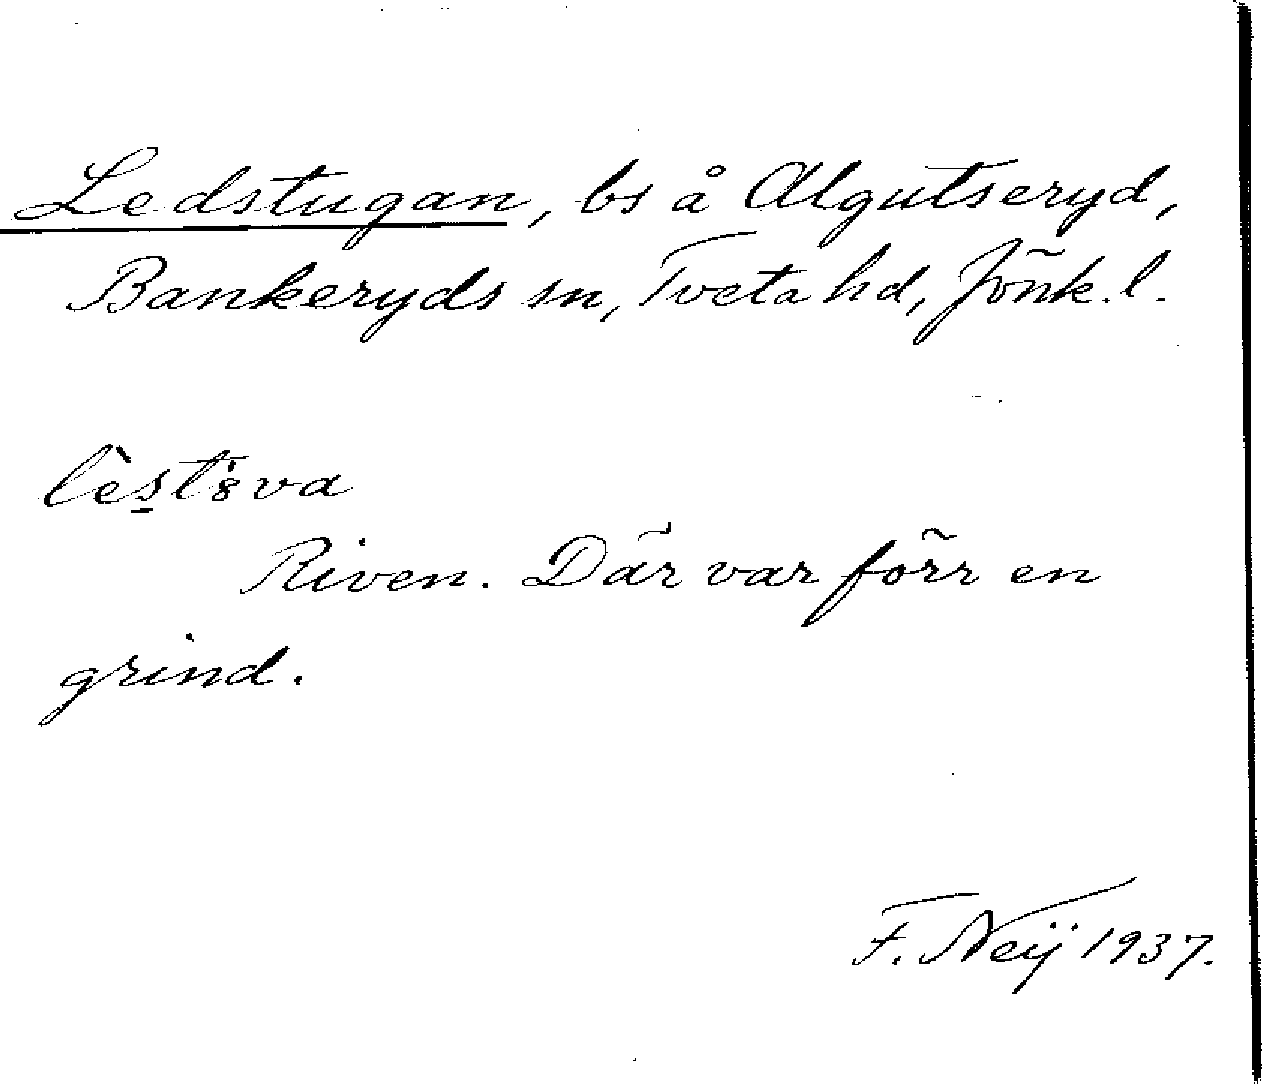 Ledstugan, bs å Algutseryd,
Bankeryds sn, Tveta hd, Jönk. l.
lèst8va
Riven. Där var förr en
grind.
F. Neij 1937.